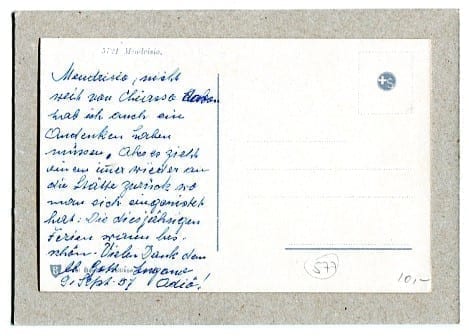 5721 Mendrisio.
Mendrisio, nicht
weit von Chiasso davon
hab ich auch ein
Andenken haben
müssen. Aber es zieht
einen imer wieder an
die Stätte zurück wo
man sich eingenistet
hat: Die diesjährigen
Ferien waren bes.
schön. Vielen Dank dem
lb. Gott. Lugano
9. Sept. 57 Adiö!
577
10,-